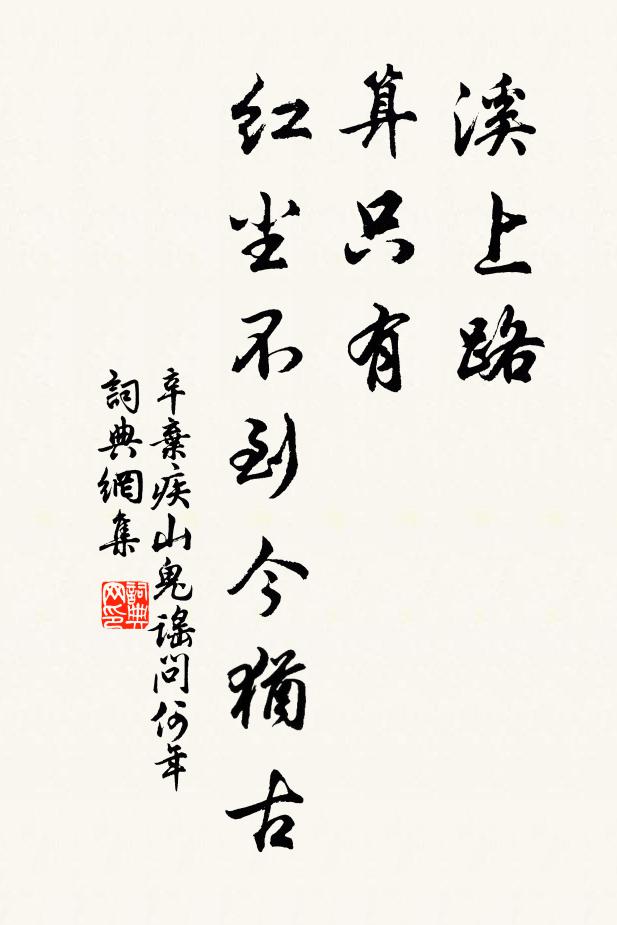 溪上路
算只有
红尘不到今犹古
辛棄疾山鬼謠問何年
詞典網集
詞典网印